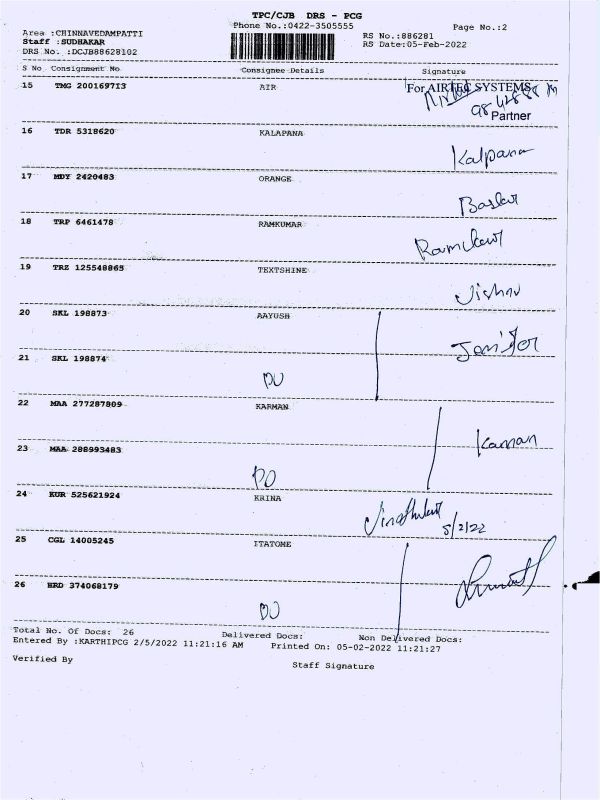 TPC/CJB DRS - PCG
Phone No.:0422-3505555
Page No.:2
Area :CHINNAVEDAMPATTI
Staff :SUDHAKAR
DRS No. :DCJB88628102
RS No.:886281
RS Date:05-Feb-2022
S No Consignment No Consignee Details Signature
15 TMG 200169713 AIR For AIRTEC SYSTEMS
Partner
16 TDR 5318620 KALAPANA
Kalpana
17 MDY 2420483 ORANGE
18 TRP 6461478 RAMKUMAR
Ramkumar
19 TRZ 125548865 TEXTSHINE
Vishnu
20 SKL 198873 AAYUSH
Jenifer
21 SKL 198874
DO
22 MAA 277287809 KARMAN
Karman
23 MAA 288993483
DO
24 KUR 525621924 KRINA
5/2/22
25 CGL 14005245 ITATOME
26 HRD 374068179
DO
Total No. Of Docs: 26 Delivered Docs: Non Delivered Docs:
Entered By :KARTHIPCG 2/5/2022 11:21:16 AM Printed On: 05-02-2022 11:21:27
Verified By Staff Signature